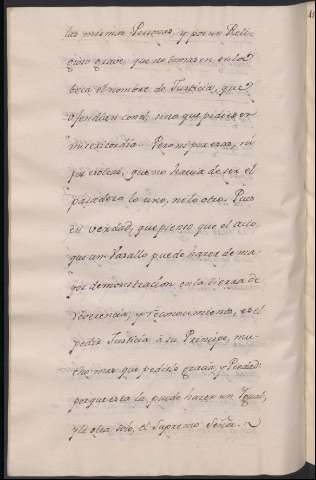 las mismas Personas y por un Dele-
cioso grave, que no tomasen en la
boca el nombre de Justicia, que
ofendian con el, sino que pidiesen
misericordia. Pero ni por esas, ni
por esotras, que no havia de ser el
pasadero lo uno, ni lo otro. Pues
en verdad, que pienso que el acto,
que un Vasallo puede hacer de ma-
yor demonstracion en la tierra de
reverencia, y reconocimiento, es el
pedir Justicia à su Principe, mu-
cho mas que pedirle gracia, y Piedad:
porque esta la puede hacer un Igual,
y la otra solo, el Supremo Señor.